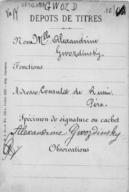 GWOZD
DEPOTS DE TITRES
Nom Mlle Alexandrine
Gwozdinsky.
Fonctions
Adresse Consulat de Russie
Péra.
Spécimen de signature ou cachet
Alexandrine Gwozdinsky
Observations